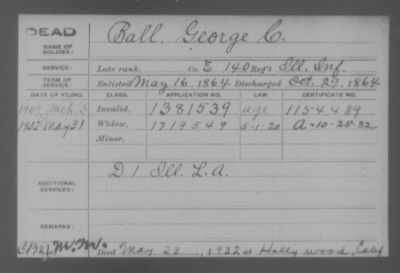 DEAD
NAME OF SOLDIER: Ball, George C.
SERVICE: Late rank, Co. E. 140 Reg't Ill. Inf.
TERM OF SERVICE: Enlisted May 16, 1864 Discharged Oct. 29, 1864
DATE OF FILING. CLASS. APPLICATION NO. LAW. CERTIFICATE NO.
1907 Mch. 3 Invalid, 1381539 age 1134489
1932 May 31 Widow, 1719549 5-1-20 A-10-25-32
Minor,
ADDITIONAL SERVICES: D 1 Ill. L.A.
REMARKS:
Died May 22, 1932 at Hollywood, Calif